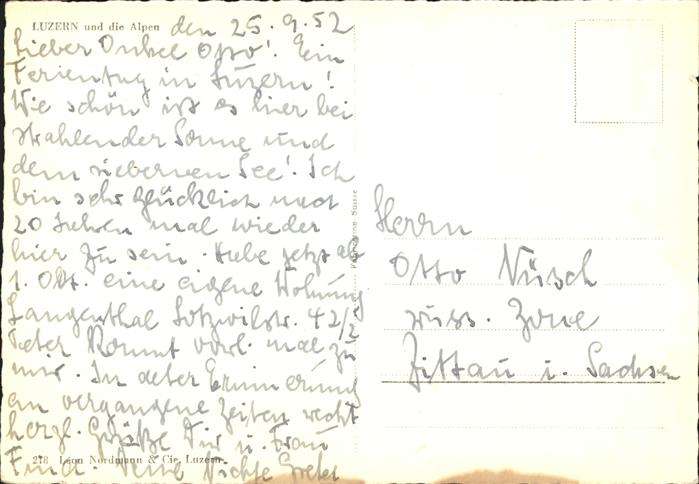 LUZERN und die Alpen den 25.9.52
Lieber Onkel Otto! Ein
Ferientag in Luzern!
Wie schön ist es hier bei
strahlender Sonne und
dem silbernen See! Ich
bin sehr glücklich nach
20 Jahren mal wieder
hier zu sein. Habe jetzt ab
1. Okt. eine eigene Wohnung
Langenthal Lotzwilstr. 42/2
Peter kommt vorl. mal zu
mir. In alter Erinnerung
an vergangene Zeiten recht
herzl. Grüße Dir u. Frau
278 Léon Nordmann & Cie, Luzern
Deine Nichte Gretel
Herrn
Otto Nüsch
russ. Zone
Zittau i. Sachsen